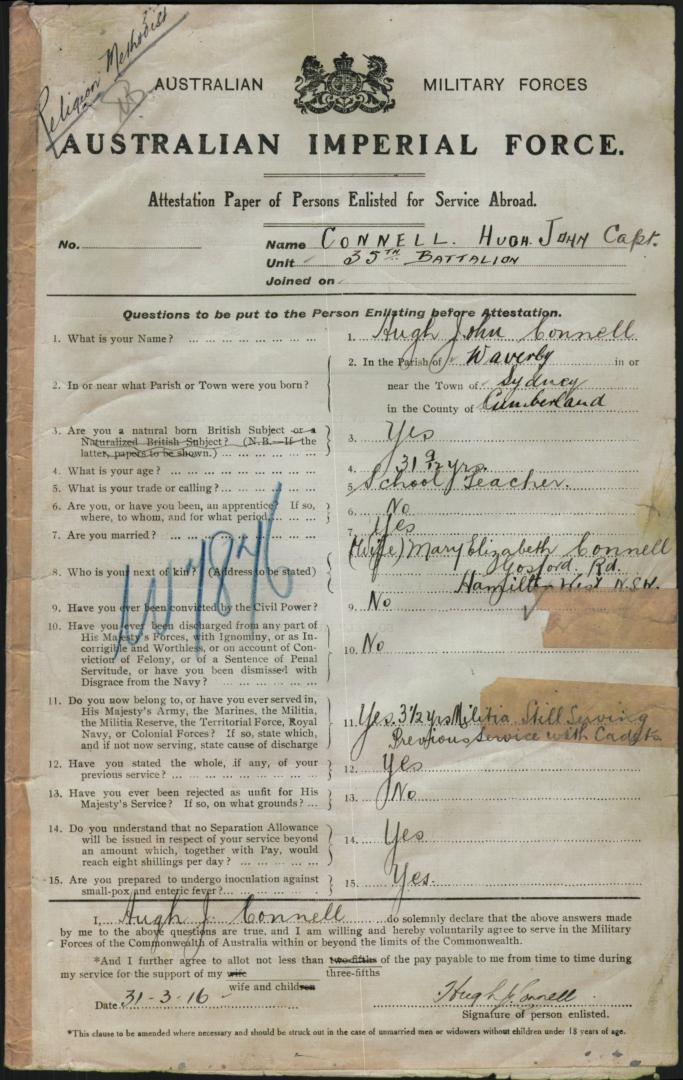 Religion Methodist
AUSTRALIAN MILITARY FORCES
AUSTRALIAN IMPERIAL FORCE.
Attestation Paper of Persons Enlisted for Service Abroad.
No.
Name CONNELL. HUGH. JOHN Capt.
Unit 35TH BATTALION
Joined on
Questions to be put to the Person Enlisting before Attestation.
1. What is your Name?
1. Hugh John Connell
2. In or near what Parish or Town were you born?
2. In the Parish of Waverly in or
near the Town of Sydney
in the County of Cumberland
3. Are you a natural born British Subject or a
Naturalized British Subject? (N.B.—If the
latter, papers to be shown.)
3. Yes
4. What is your age?
4. 31 9/12 yrs.
5. What is your trade or calling?
5. School Teacher.
6. Are you, or have you been, an apprentice? If so,
where, to whom, and for what period
6. No
7. Are you married?
7. Yes
8. Who is your next of kin? (Address to be stated)
8. (Wife) Mary Elizabeth Connell
Gosford Rd.
Hamilton West N.S.W.
W7876
9. Have you ever been convicted by the Civil Power?
9. No
10. Have you ever been discharged from any part of
His Majesty's Forces, with Ignominy, or as In-
corrigible and Worthless, or on account of Con-
viction of Felony, or of a Sentence of Penal
Servitude, or have you been dismissed with
Disgrace from the Navy?
10. No
11. Do you now belong to, or have you ever served in,
His Majesty's Army, the Marines, the Militia,
the Militia Reserve, the Territorial Force, Royal
Navy, or Colonial Forces? If so, state which,
and if not now serving, state cause of discharge
11. Yes. 3 1/2 yrs Militia Still Serving
Previous Service with Cadets
12. Have you stated the whole, if any, of your
previous service?
12. Yes
13. Have you ever been rejected as unfit for His
Majesty's Service? If so, on what grounds?
13. No
14. Do you understand that no Separation Allowance
will be issued in respect of your service beyond
an amount which, together with Pay, would
reach eight shillings per day?
14. Yes
15. Are you prepared to undergo inoculation against
small-pox and enteric fever?
15. Yes.
I, Hugh J. Connell do solemnly declare that the above answers made
by me to the above questions are true, and I am willing and hereby voluntarily agree to serve in the Military
Forces of the Commonwealth of Australia within or beyond the limits of the Commonwealth.
*And I further agree to allot not less than two-fifths of the pay payable to me from time to time during
my service for the support of my wife three-fifths
wife and children
Date 31-3-16
Hugh J Connell
Signature of person enlisted.
*This clause to be amended where necessary and should be struck out in the case of unmarried men or widowers without children under 18 years of age.